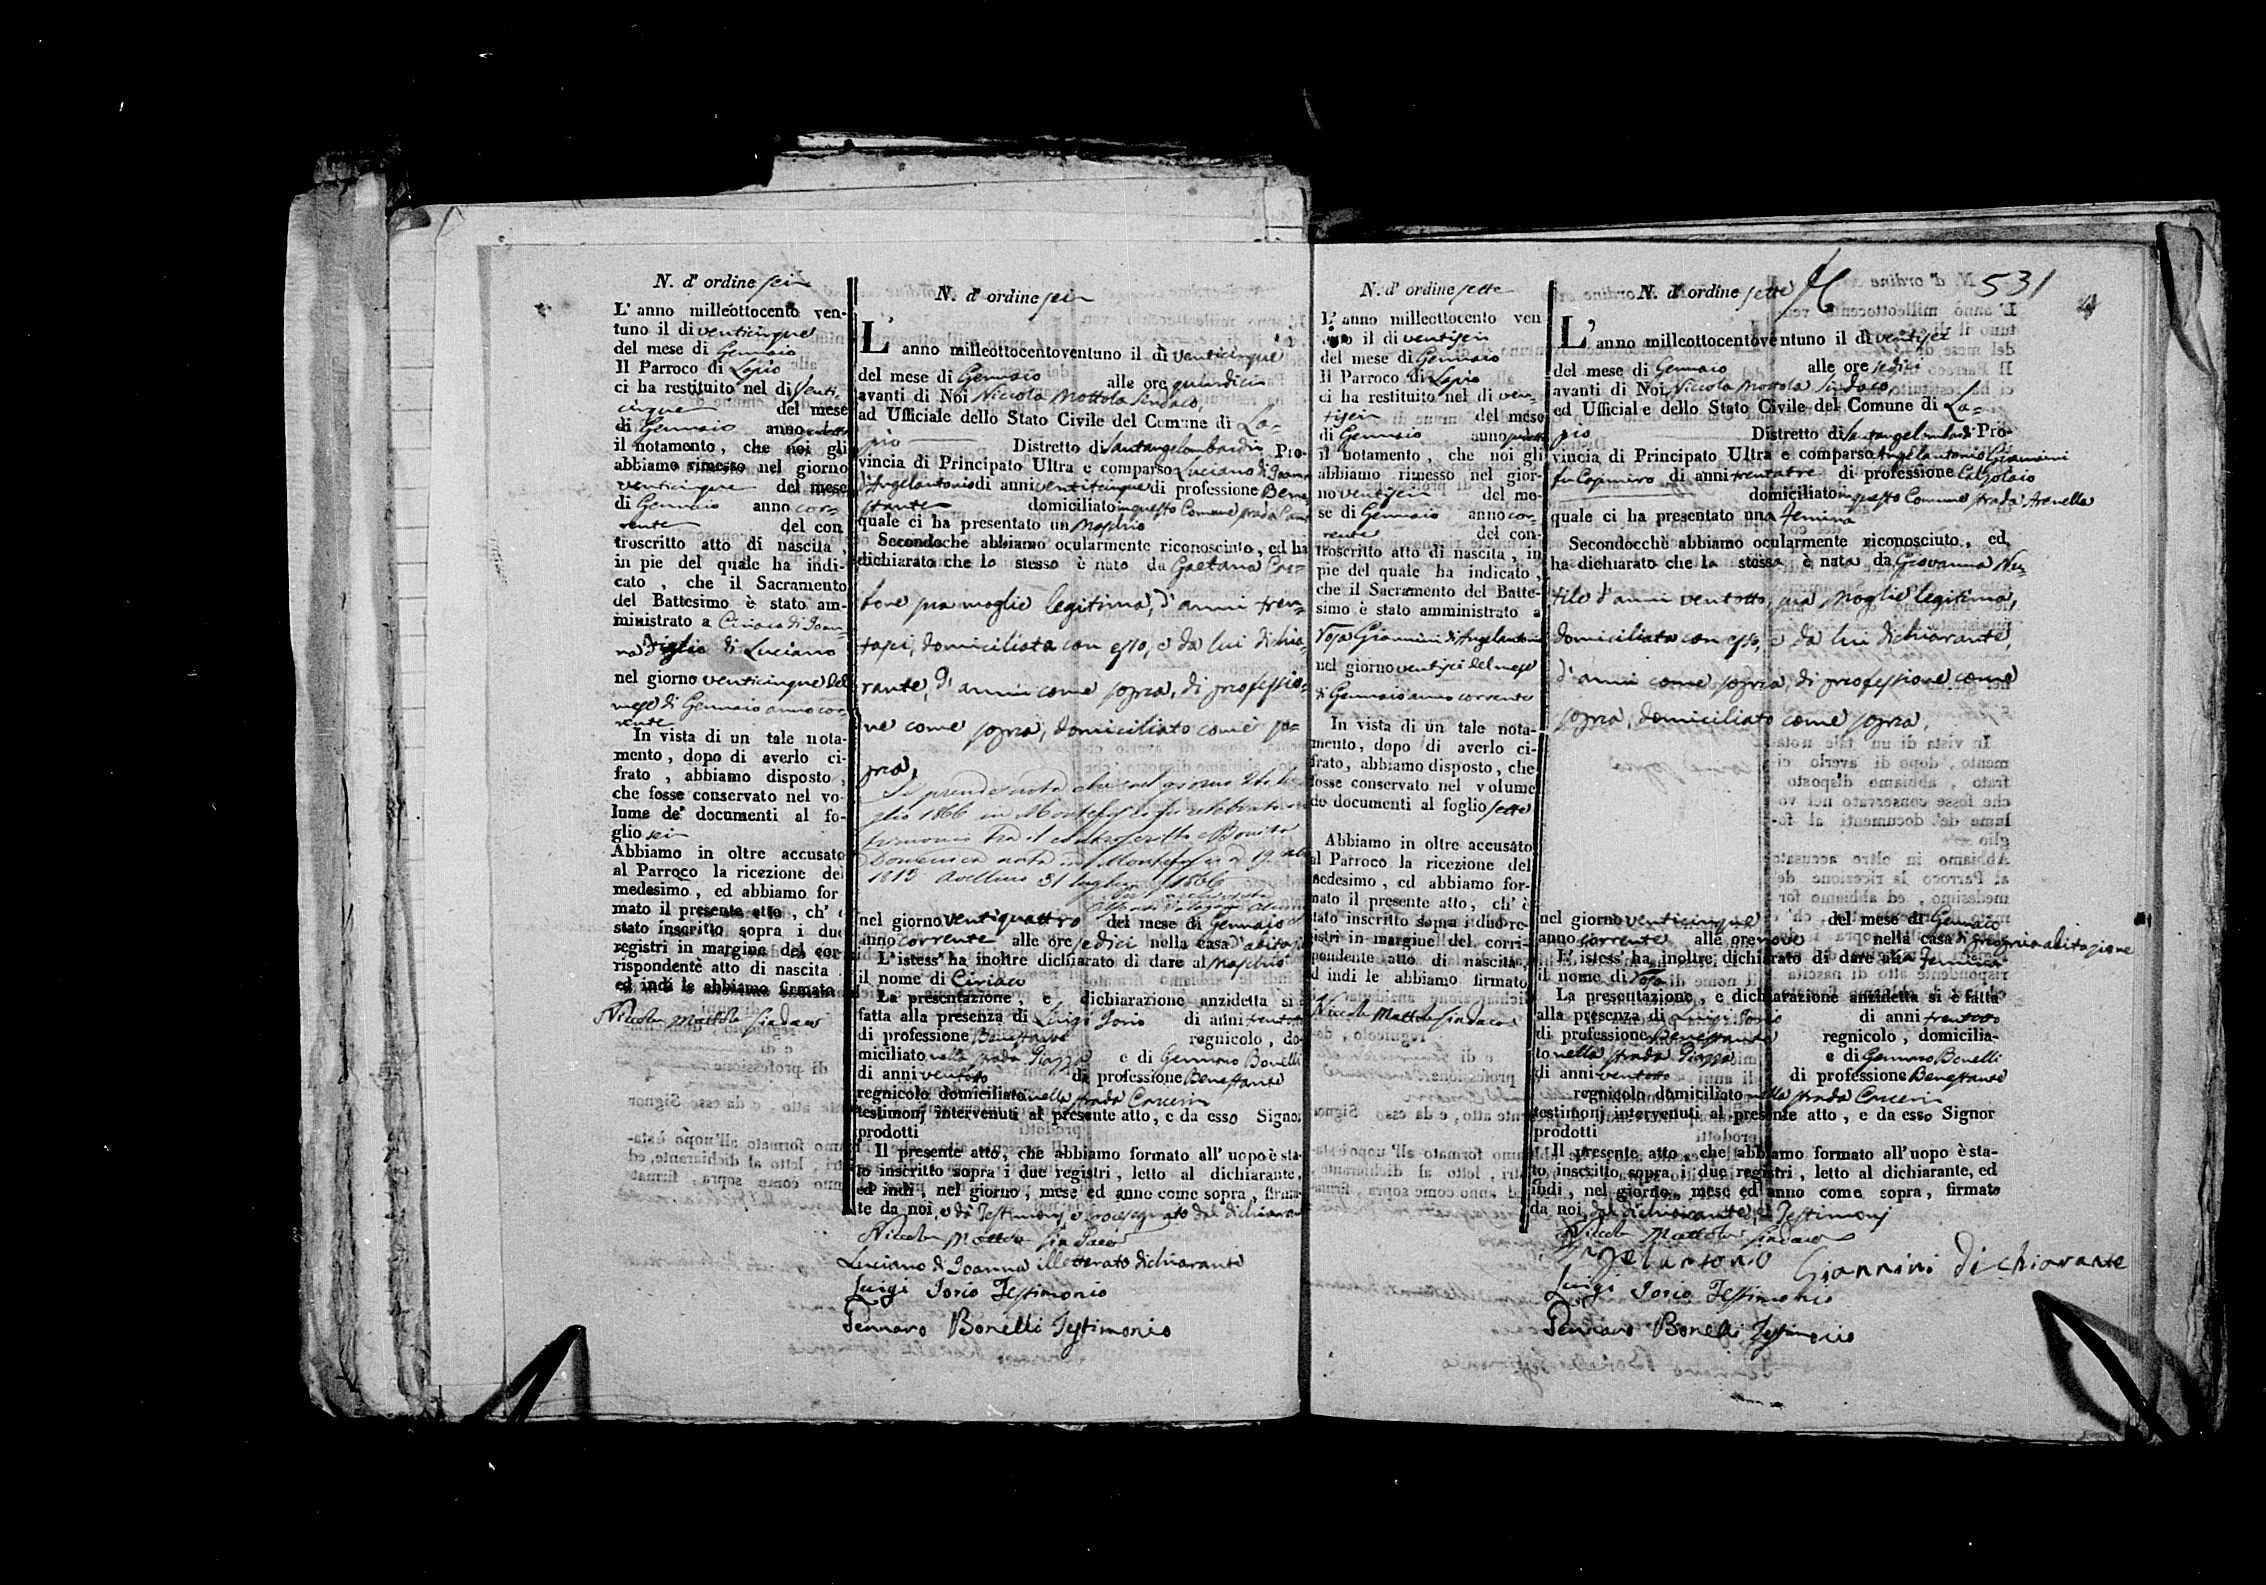 N. d' ordine sei
L' anno milleottocento ven-
tuno il di venticinque
del mese di Gennaio
Il Parroco di Lapio
ci ha restituito nel di Venti-
cinque del mese
di Gennaio anno
il notamento, che noi gli
abbiamo rimesso nel giorno
venticinque del mese
di Gennaio anno cor-
rente del con
troscritto atto di nascita,
in pie del quale ha indi-
cato, che il Sacramento
del Battesimo è stato am-
ministrato a Ciriaco di Joan-
na figlio di Luciano
nel giorno venticinque del
mese di Gennaio anno cor-
rente
In vista di un tale nota-
mento, dopo di averlo ci-
frato, abbiamo disposto,
che fosse conservato nel vo-
lume de' documenti al fo-
glio sei
Abbiamo in oltre accusato
al Parroco la ricezione del
medesimo, ed abbiamo for
mato il presente atto, ch' è
stato inscritto sopra i due
registri in margine del cor
rispondente atto di nascita
ed indi le abbiamo firmato
Niccola Mottola Sindaco
N. d' ordine sei
L' anno milleottocentoventuno il dì venticinque
del mese di Gennaio alle ore quindici
avanti di Noi Niccola Mottola Sindaco,
ad Ufficiale dello Stato Civile del Comune di La-
pio Distretto di Santangelombardi Pro-
vincia di Principato Ultra e comparso Luciano di Joanna
d'Angelantonio di anni venticinque di professione Bene
stante domiciliato in questo Comune strada
quale ci ha presentato un Maschio
Secondochè abbiamo ocularmente riconosciuto, ed ha
dichiarato che lo stesso è nato da Gaetana
sua moglie legitima, d'anni tren-
tasei, domiciliata con esso, e da lui dichia-
rante, d'anni come sopra, di professio-
ne come sopra, domiciliato come so-
pra,
Si prende nota che nel giorno
glio 1866 in Montefusco fu celebrato
trimonio tra il controscritto e Bonito
Domenica nata in Montefusco a 19
1813 Avellino 31 luglio 1866
nel giorno ventiquattro del mese di Gennaio
anno corrente alle ore sedici nella casa d'abitazi
L'istess' ha inoltre dichiarato di dare al Maschio
il nome di Ciriaco
La presentazione, e dichiarazione anzidetta si è
fatta alla presenza di Luigi Iorio di anni trentotto
di professione Benestante regnicolo, do-
miciliato nella strada Piazza e di Gennaro Bonelli
di anni ventotto di professione Benestante
regnicolo domiciliato nella strada Carceri
testimonj intervenuti al presente atto, e da esso Signor
prodotti
Il presente atto, che abbiamo formato all' uopo è sta-
to inscritto sopra i due registri, letto al dichiarante,
ed indi, nel giorno, mese ed anno come sopra, firma-
te da noi, e da Testimonj e crocesegnato dal dichiarante
Niccola Mottola Sindaco
Luciano di Joanna illetterato dichiarante
Luigi Iorio Testimonio
Gennaro Bonelli Testimonio
N. d' ordine sette
L' anno milleottocento ven
tuno il di ventisei
del mese di Gennaio
Il Parroco di Lapio
ci ha restituito nel di ven-
tisei del mese
di Gennaio anno
il notamento, che noi gli
abbiamo rimesso nel gior-
no ventisei del me-
se di Gennaio anno cor-
rente del con-
troscritto atto di nascita, in
pie del quale ha indicato,
che il Sacramento del Batte-
simo è stato amministrato a
Rosa Giannini di Angelantonio
nel giorno ventisei del mese
di Gennaio anno corrente
In vista di un tale nota-
mento, dopo di averlo ci-
frato, abbiamo disposto, che
fosse conservato nel volume
de documenti al foglio sette
Abbiamo in oltre accusato
al Parroco la ricezione del
medesimo, ed abbiamo for-
mato il presente atto, ch' è
stato inscritto sopra i due re-
gistri in margine del corri-
spondente atto di nascita,
ed indi le abbiamo firmato
Niccola Mottola Sindaco
N. d' ordine sette
531
4
L' anno milleottocentoventuno il dì ventisei
del mese di Gennaio alle ore sedici
avanti di Noi Niccola Mottola Sindaco
ed Ufficiale dello Stato Civile del Comune di La-
pio Distretto di Santangelombardi Pro-
vincia di Principato Ultra e comparso Angelantonio Giannini
fu Casimiro di anni trentatre di professione Calzolaio
domiciliato in questo Comune strada Arenella
quale ci ha presentato una Femina
Secondocchè abbiamo ocularmente riconosciuto, ed
ha dichiarato che la stessa è nata da Giovanna
d'anni ventotto, sua Moglie legitima,
domiciliata con esso, e da lui dichiarante,
d'anni come sopra, di professione come
sopra, domiciliato come sopra,
nel giorno venticinque del mese di Gennaio
anno corrente alle ore nove nella casa di propria abitazione
L' istess' ha inoltre dichiarato di dare alla Femina
il nome di Rosa
La presentazione, e dichiarazione anzidetta si è fatta
alla presenza di Luigi Iorio di anni trentotto
di professione Benestante regnicolo, domicilia-
to nella strada Piazza e di Gennaro Bonelli
di anni ventotto di professione Benestante
regnicolo domiciliato nella strada Carceri
testimonj intervenuti al presente atto, e da esso Signor
prodotti
Il presente atto, che abbiamo formato all'uopo è sta-
to inscritto sopra i due registri, letto al dichiarante, ed
indi, nel giorno, mese ed anno come sopra, firmato
da noi, dal dichiarante, e Testimonj
Niccola Mottola Sindaco
Angelantonio Giannini Dichiarante
Luigi Iorio Testimonio
Gennaro Bonelli Testimonio